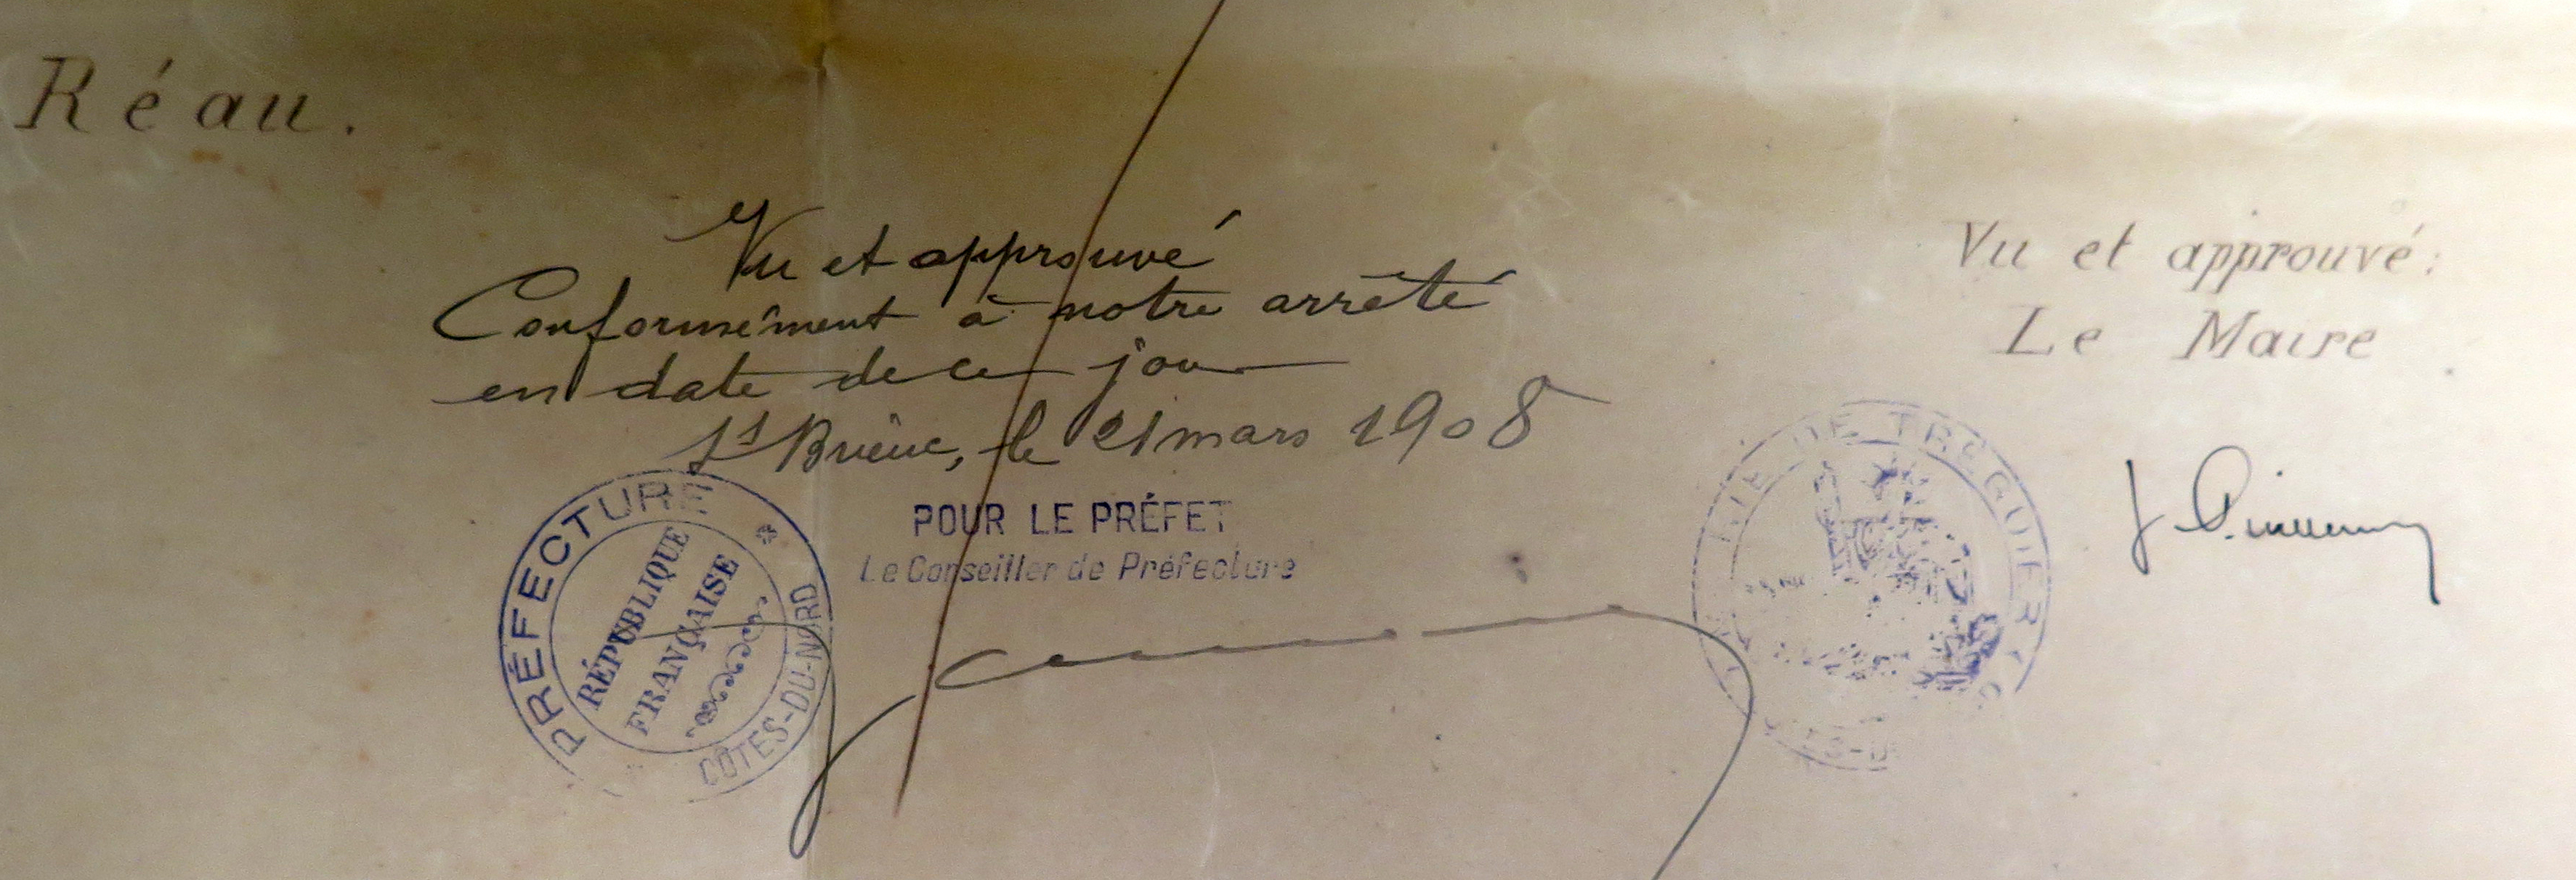 Réau.
Vu et approuvé
Conformément à notre arrêté
en date de ce jour
St Brieuc, le 21 mars 1908
POUR LE PRÉFET
Le Conseiller de Préfecture
PRÉFECTURE
RÉPUBLIQUE
FRANÇAISE
CÔTES-DU-NORD
Vu et approuvé:
Le Maire
MAIRIE DE TRÉGUIER